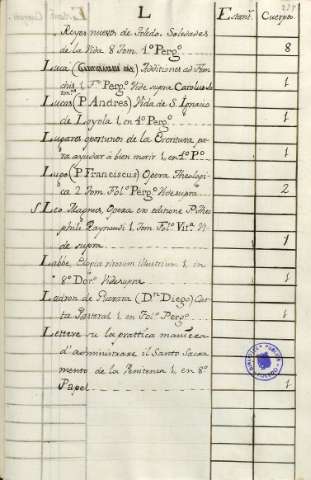 L
Estant. Cuerpos
Reyes nuevos de Toledo. Soledades
de la Vida 8 Tom. 4º Pergº 8
Luca ( ) Additiones ad
1. Tº Pergº Vide supra 1
Lucas (P. Andres) Vida de S. Ignacio
de Loyola 1. en 4º Perg. 1
Lugares oportunos de la Escritura pa-
ra ayudar à bien morir 1. en 4º Pº 1
Lugo (P. Franciscus) Opera Theologi-
ca 2 Tom. Folº Pergº Vide supra 2
S. Leo Magnus, Opera ex editione P. Theo-
phili Raynaudi 1. Tom. Folº Vitª Vi-
de supra 1
Labbe, Elogia virorum illustrium 1. en
8º Dorº Vide supra 1
Ladron de Guevara (Dn. Diego) Car-
ta Pastoral 1. en Folº Pergº 1
Lettere su la prattica maniera
d'administrare il Santo Sacra-
mento de la Penitenza 1. en 8º
Papel 1